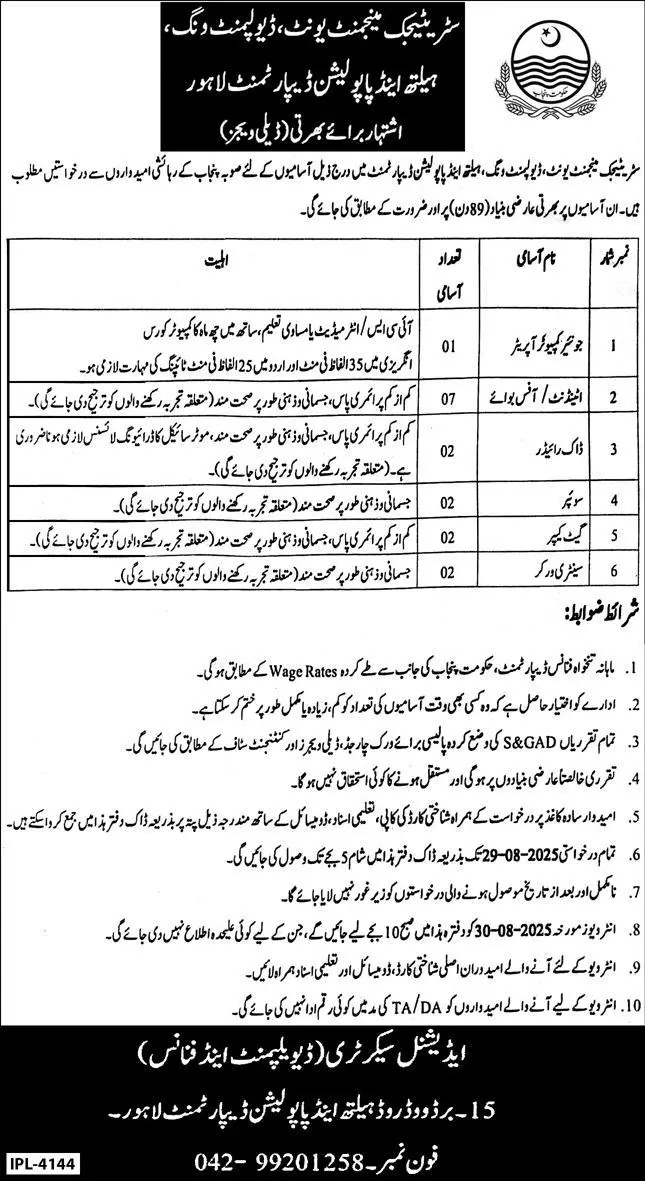 سٹریٹیجک مینجمنٹ یونٹ، ڈیولپمنٹ ونگ،
ہیلتھ اینڈ پاپولیشن ڈیپارٹمنٹ لاہور
اشتہار برائے بھرتی (ڈیلی ویجز)
حکومت پنجاب
سٹریٹیجک مینجمنٹ یونٹ، ڈیولپمنٹ ونگ، ہیلتھ اینڈ پاپولیشن ڈیپارٹمنٹ میں درج ذیل آسامیوں کے لئے صوبہ پنجاب کے رہائشی امیدواروں سے درخواستیں مطلوب
ہیں۔ ان آسامیوں پر بھرتی عارضی بنیاد (89 دن) پر اور ضرورت کے مطابق کی جائے گی۔
نمبر شمار نام آسامی تعداد آسامی اہلیت
1 جونیئر کمپیوٹر آپریٹر 01 آئی سی ایس / انٹرمیڈیٹ یا مساوی تعلیم، ساتھ میں چھ ماہ کا کمپیوٹر کورس
انگریزی میں 35 الفاظ فی منٹ اور اردو میں 25 الفاظ فی منٹ ٹائپنگ کی مہارت لازمی ہو۔
2 اٹینڈنٹ / آفس بوائے 07 کم از کم پرائمری پاس، جسمانی و ذہنی طور پر صحت مند (متعلقہ تجربہ رکھنے والوں کو ترجیح دی جائے گی)۔
3 ڈاک رائیڈر 02 کم از کم پرائمری پاس، جسمانی و ذہنی طور پر صحت مند، موٹر سائیکل کا ڈرائیونگ لائسنس لازمی ہونا ضروری
ہے۔ (متعلقہ تجربہ رکھنے والوں کو ترجیح دی جائے گی)۔
4 سوئپر 02 جسمانی و ذہنی طور پر صحت مند (متعلقہ تجربہ رکھنے والوں کو ترجیح دی جائے گی)۔
5 گیٹ کیپر 02 کم از کم پرائمری پاس، جسمانی و ذہنی طور پر صحت مند (متعلقہ تجربہ رکھنے والوں کو ترجیح دی جائے گی)۔
6 سینٹری ورکر 02 جسمانی و ذہنی طور پر صحت مند (متعلقہ تجربہ رکھنے والوں کو ترجیح دی جائے گی)۔
شرائط ضوابط:
1. ماہانہ تنخواہ فنانس ڈیپارٹمنٹ، حکومت پنجاب کی جانب سے طے کردہ Wage Rates کے مطابق ہوگی۔
2. ادارے کو اختیار حاصل ہے کہ وہ کسی بھی وقت آسامیوں کی تعداد کو کم، زیادہ یا مکمل طور پر ختم کر سکتا ہے۔
3. تمام تقرریاں S&GAD کی وضع کردہ پالیسی برائے ورک چارجڈ، ڈیلی ویجرز اور کنٹنجنٹ سٹاف کے مطابق کی جائیں گی۔
4. تقرری خالصتاً عارضی بنیادوں پر ہوگی اور مستقل ہونے کا کوئی استحقاق نہیں ہوگا۔
5. امیدوار سادہ کاغذ پر درخواست کے ہمراہ شناختی کارڈ کی کاپی، تعلیمی اسناد، ڈومیسائل کے ساتھ مندرجہ ذیل پتہ پر بذریعہ ڈاک دفتر ہذا میں جمع کرواسکتے ہیں۔
6. تمام درخواستیں 29-08-2025 تک بذریعہ ڈاک دفتر ہذا میں شام 5 بجے تک وصول کی جائیں گی۔
7. نامکمل اور بعد از تاریخ موصول ہونے والی درخواستوں کو زیر غور نہیں لایا جائے گا۔
8. انٹرویوز مورخہ 30-08-2025 کو دفتر ہذا میں صبح 10 بجے لیے جائیں گے، جن کے لیے کوئی علیحدہ اطلاع نہیں دی جائے گی۔
9. انٹرویو کے لئے آنے والے امیدواران اصلی شناختی کارڈ، ڈومیسائل اور تعلیمی اسناد ہمراہ لائیں۔
10. انٹرویو کے لیے آنے والے امیدواروں کو TA/DA کی مد میں کوئی رقم ادا نہیں کی جائے گی۔
ایڈیشنل سیکرٹری (ڈیولپمنٹ اینڈ فنانس)
15۔ برڈووڈ روڈ ہیلتھ اینڈ پاپولیشن ڈیپارٹمنٹ لاہور۔
فون نمبر۔ 042-99201258
IPL-4144